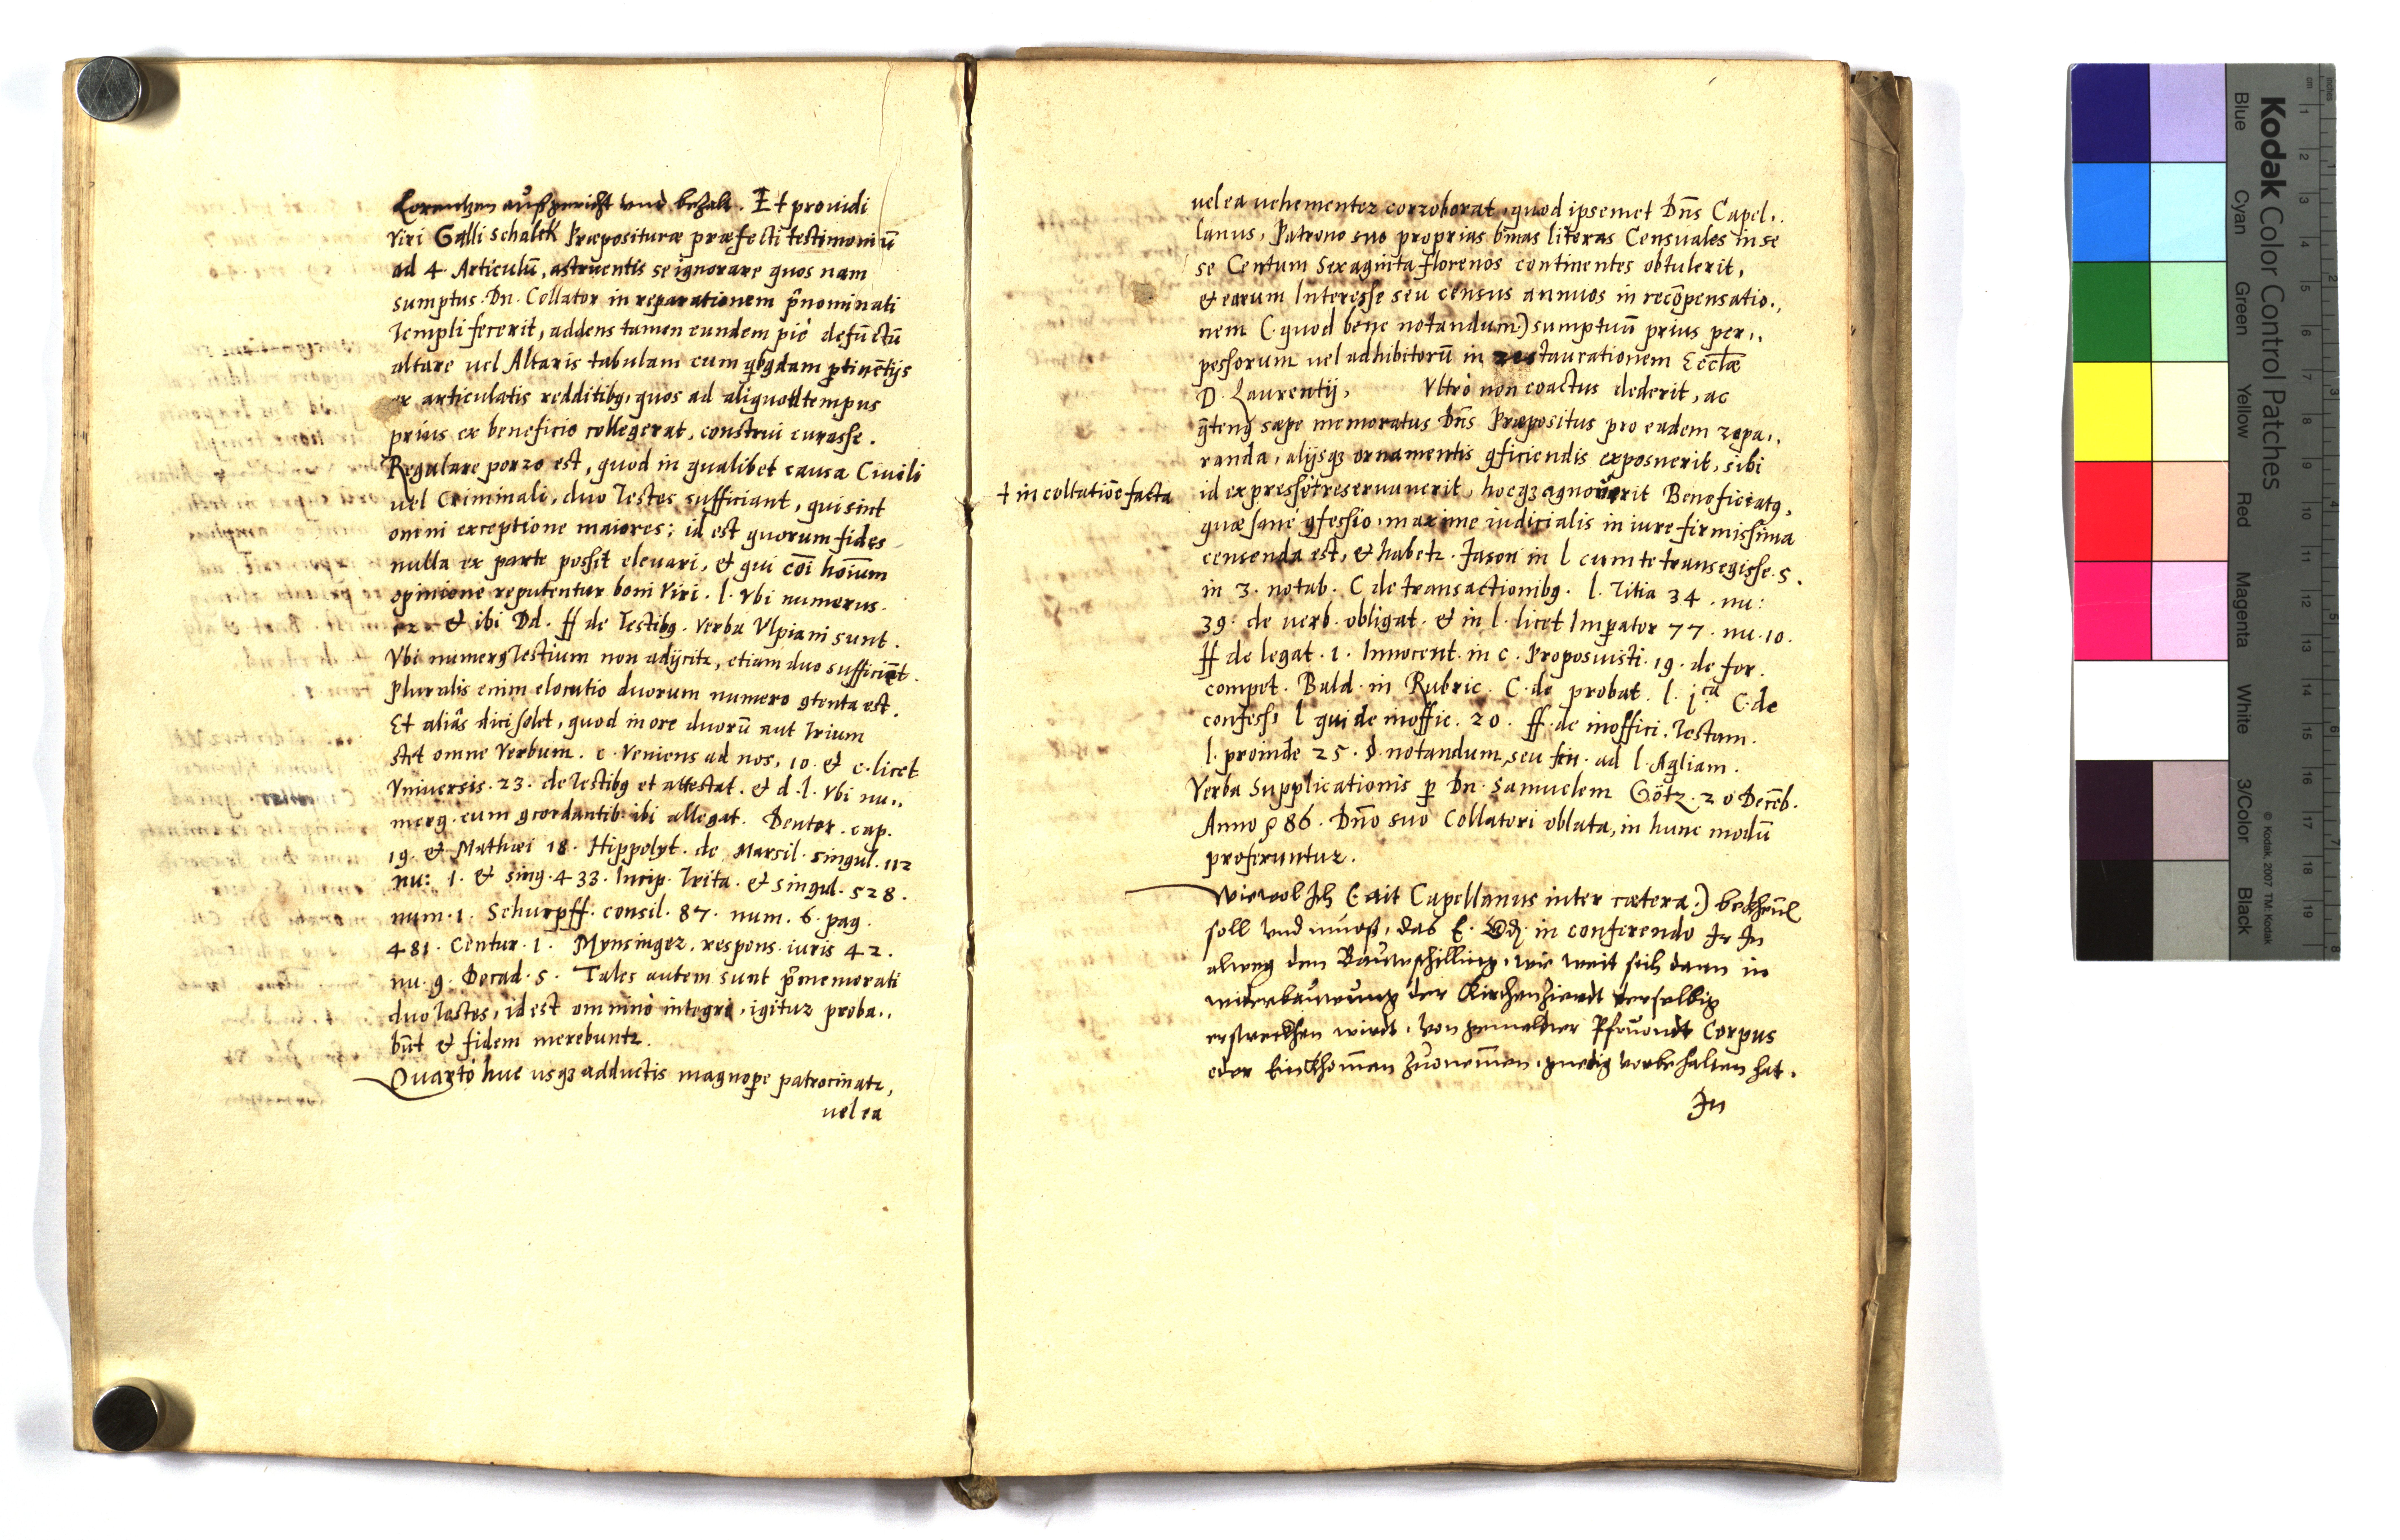 Lorentzen außgericht vnd bezalt. Et prouidi
Viri Galli Schalck Præposituræ præfecti testimoniū
ad 4. Articulū, astruentis se ignorare quos nam
sumptus Dn. Collator in reparationem p̄nominati
Templi fecerit, addens tamen eundem piè defūctū
altare uel Altaris tabulam cum qbgdam ptinētijs
ex articulatis redditibg, quos ad aliquod tempus
prius ex beneficio collegerat, construi curasse.
Regulare porro est, quod in qualibet causa Ciuili
uel Criminali, duo Testes sufficiant, qui sint
omni exceptione maiores: id est quorum fides
nulla ex parte possit eleuari, et qui cōi hoīum
opinione reputentur boni Viri. l. Vbi numerus.
12 et ibi Dd. ff de Testibg. Verba Vlpiani sunt.
Vbi numerg Testium non adijcitr, etiam duo sufficiēt.
Pluralis enim elocutio duorum numero gtenta est.
Et aliâs dici solet, quod in ore duorū aut Trium
stet omne Verbum. c. Veniens ad nos, 10. et c. licet
Vniuersis. 23. de Testibg et attestat. et d. l. Vbi nu,,
merg. cum gcordantib. ibi allegat. Deuter. cap.
19. et Mathæi 18. Hippolyt. de Marsil. singul. 112
nu: 1. et sing. 433. Incip. Trita. et singul. 528.
num. 1. Schurpff. consil. 87. num. 6. pag.
481. Centur. 1. Mynsinger. respons. iuris 42.
nu. 9. Decad. 5. Tales autem sunt p̄memorati
duo Testes, id est omnino integri, igitur proba,,
būt et fidem merebuntr.
Quartò huc usqz adductis magnopere patrocinatr,
uel ea
uel ea uehementer corroborat, quod ipsemet Dn̄s Capel,,
lanus, Patrono suo proprias binas literas Censuales in se
se Centum Sexaginta florenos continentes obtulerit,
et earum Interesse seu census annuos in recōpensatio,,
nem (quod bene notandum) sumptuū prius per,,
pessorum uel adhibitorū in restaurationem Eccłæ
D. Laurentij, Vltrò non coactus dederit, ac
qteng sæpe memoratus Dn̄s Præpositus pro eadem repa,,
randa, alijsqz ornamentis gficiendis exposuerit, sibi
† in collatiōe facta
id expressè † reseruauerit, hocqz agnouerit Beneficiatg,
quæ sanè gfessio, maxime iudicialis in iure firmissima
censenda est, et habetr. Iason in l cum te transegisse. 5.
in 3. notab. C de transactionibg. l. Titia 34. nu:
39. de uerb. obligat. et in l. licet Imperator 77. nu. 10.
ff de legat. 1. Innocent. in c. Proposuisti. 19. de for.
compet. Bald. in Rubric. C. de probat. l. 1ca C. de
confess. l qui de inoffic. 20. ff. de inoffici. Testam.
l. proinde 25. § notandum, seu fin. ad l. Aqliam.
Verba Supplicationis p Dn. Samuelem Götz. 20 Decēb.
Anno 586. Dn̄o suo Collatori oblata, in hunc modū
proferuntur.
Wiewol Ich (ait Capellanus inter cætera)
soll vnd muoß, das E. in conferendo Ir In
alweg den Bauwschilling, wie weit sich dann in
widerbauwung der Kirchen Zierdt derselbig
erstreckhen wirdt, von gemeldter Pfruondt Corpus
oder Einckhom̄en Zuonem̄en, gnedig vorbehalten hat.
In